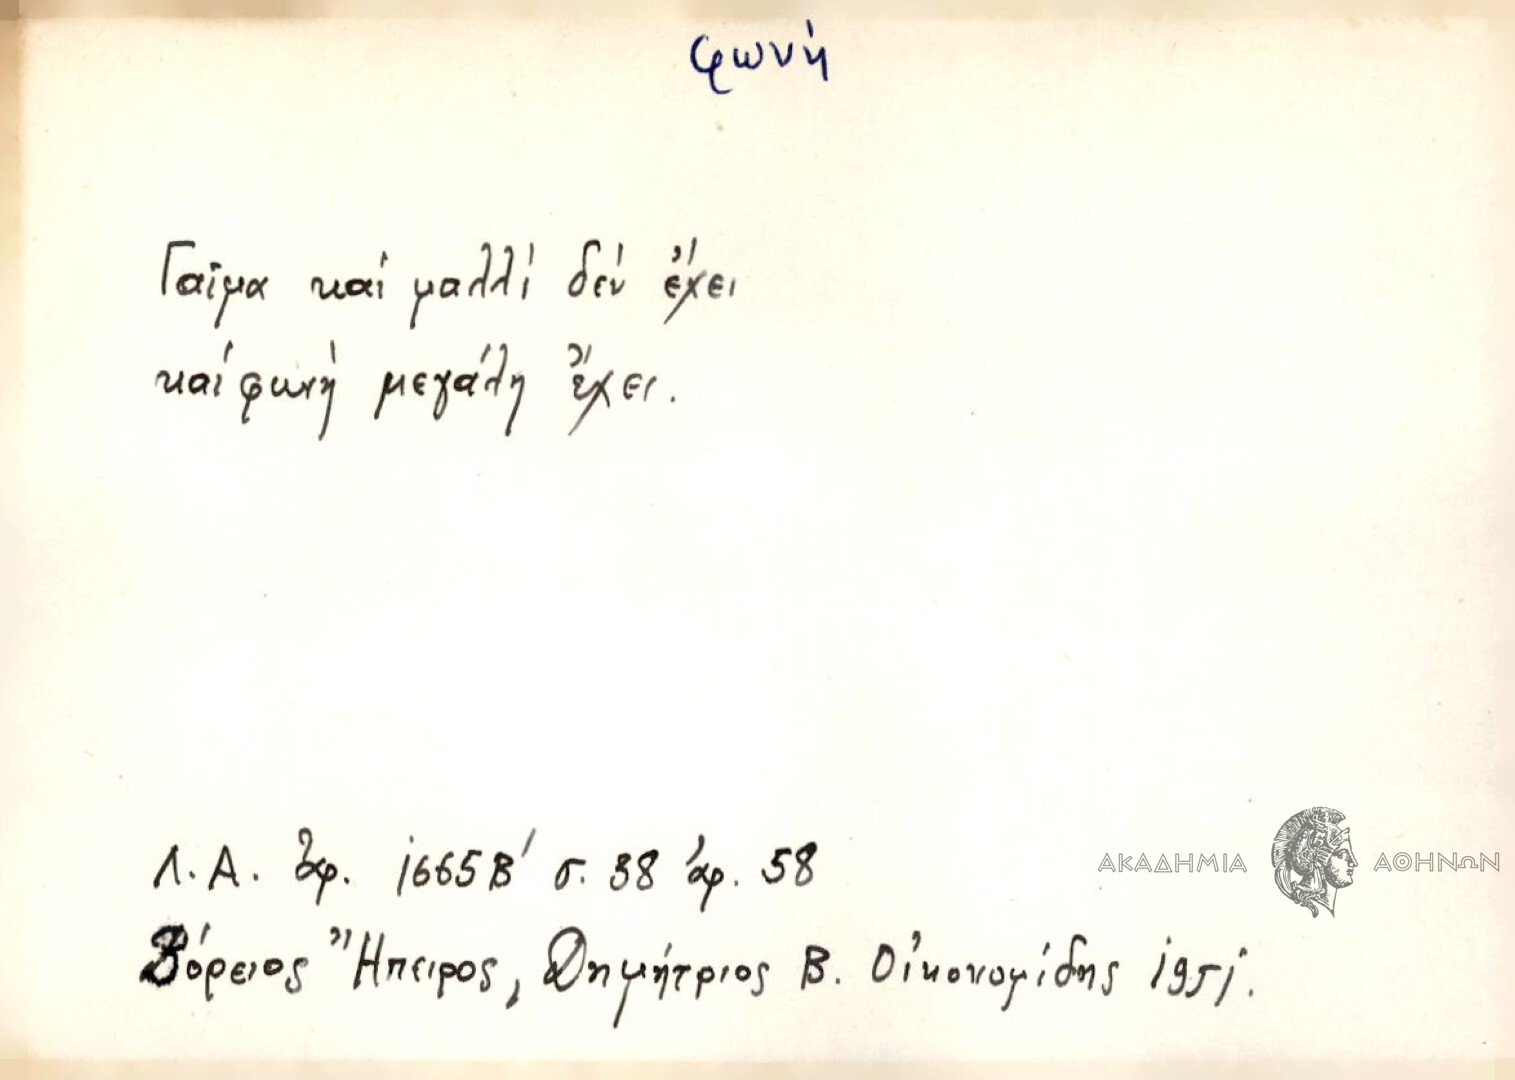 φωνή
Γαῖμα καί μαλλί δέν ἔχει
καί φωνή μεγάλη ἔχει.
Λ.Α. ἀρ. 1665Β' σ. 38 ἀρ. 58
Βόρειος Ἤπειρος, Δημήτριος Β. Οἰκονομίδης 1951.
ΑΚΑΔΗΜΙΑ ΑΘΗΝΩΝ